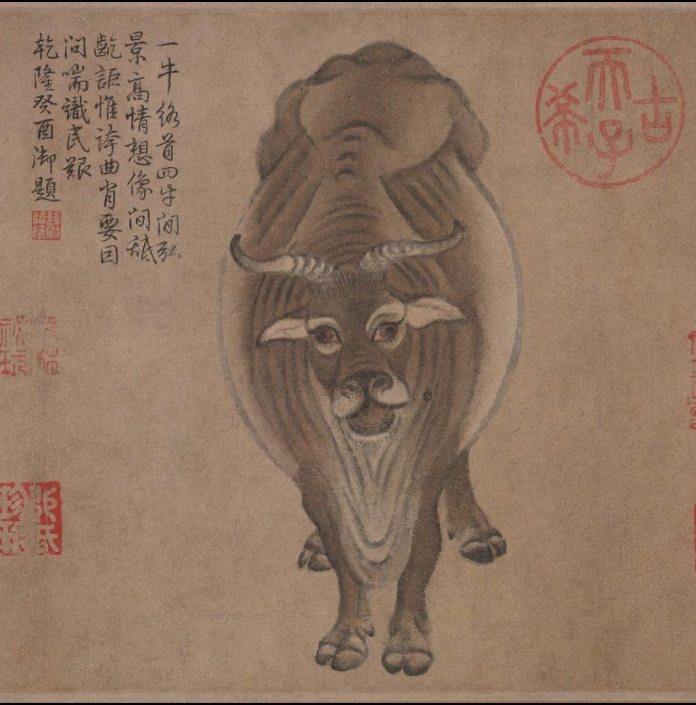 古希天子
一牛絡首四牛閒弘
景高情想像間舐
齕詎惟誇曲肖要因
問喘識民艱
乾隆癸酉御題